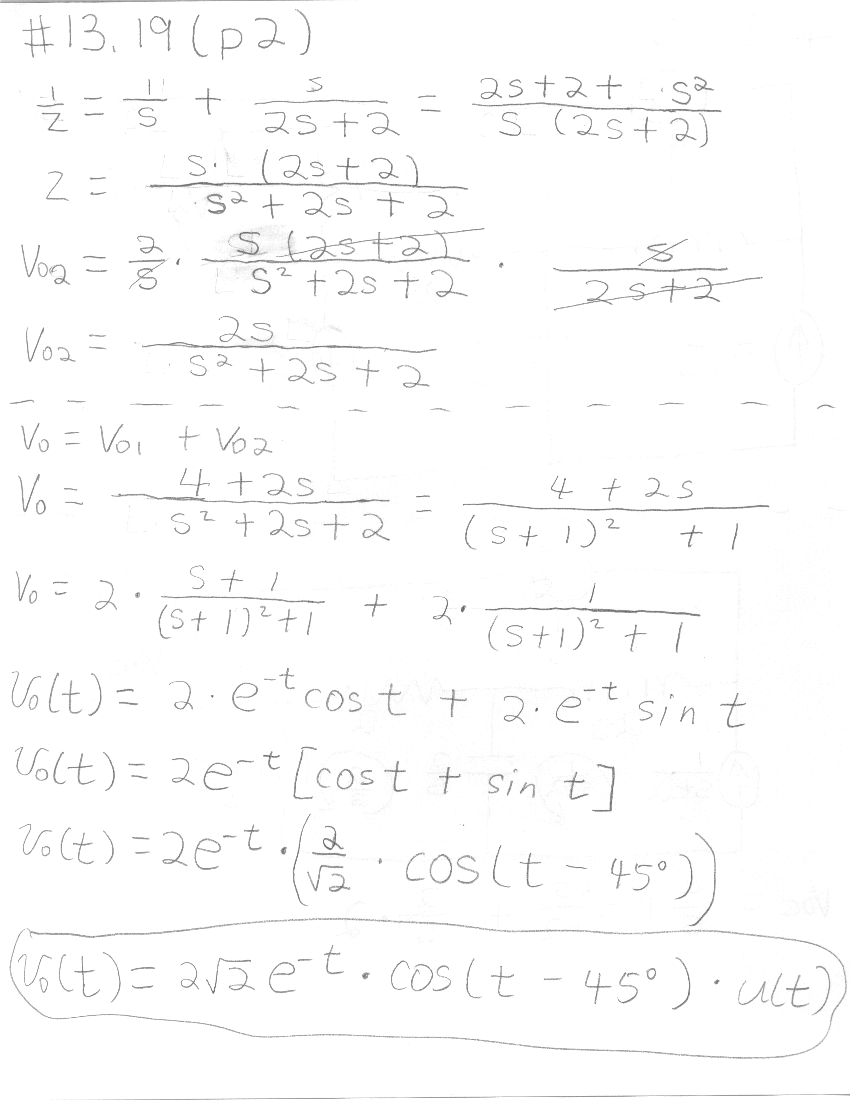 #13.19 (p2)
1/Z = 1/S + S/(2S+2) = (2S+2+S²)/(S (2S+2))
Z = S·(2S+2)/(S²+2S+2)
Vo2 = 2/S · S(2S+2)/(S²+2S+2) · S/(2S+2)
Vo2 = 2S/(S²+2S+2)
Vo = Vo1 + Vo2
Vo = (4+2S)/(S²+2S+2) = (4+2S)/((S+1)²+1)
Vo = 2 · (S+1)/((S+1)²+1) + 2 · 1/((S+1)²+1)
vo(t) = 2·e⁻ᵗ cos t + 2·e⁻ᵗ sin t
vo(t) = 2e⁻ᵗ [cos t + sin t]
vo(t) = 2e⁻ᵗ · (2/√2 · cos(t - 45°))
vo(t) = 2√2 e⁻ᵗ · cos(t - 45°) · u(t)